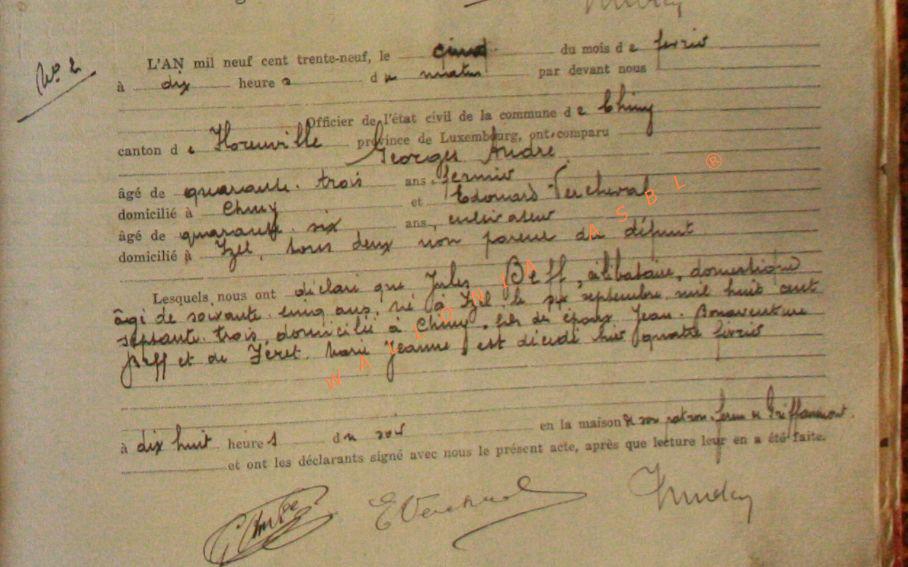 N° 2
L'AN mil neuf cent trente-neuf, le cinq du mois de février
à dix heures du matin par devant nous
Officier de l'état civil de la commune de Chiny
canton de Florenville province de Luxembourg, ont comparu
Georges André
âgé de quarante-trois ans, fermier
domicilié à Chiny et Edouard Vercheval
âgé de quarante-six ans, cultivateur
domicilié à Izel, tous deux non parents du défunt
Lesquels nous ont déclaré que Jules Peff, célibataire, domestique
âgé de soixante-cinq ans, né à Izel le six septembre mil huit cent
septante-trois, domicilié à Chiny, fils des époux Jean-Bonaventure
Peff et de Marie Jeanne, est décédé hier quatre février
à dix huit heures du soir en la maison de son patron ferme de
et ont les déclarants signé avec nous le présent acte, après que lecture leur en a été faite.
E Vercheval
WALLONIA ASBL ®